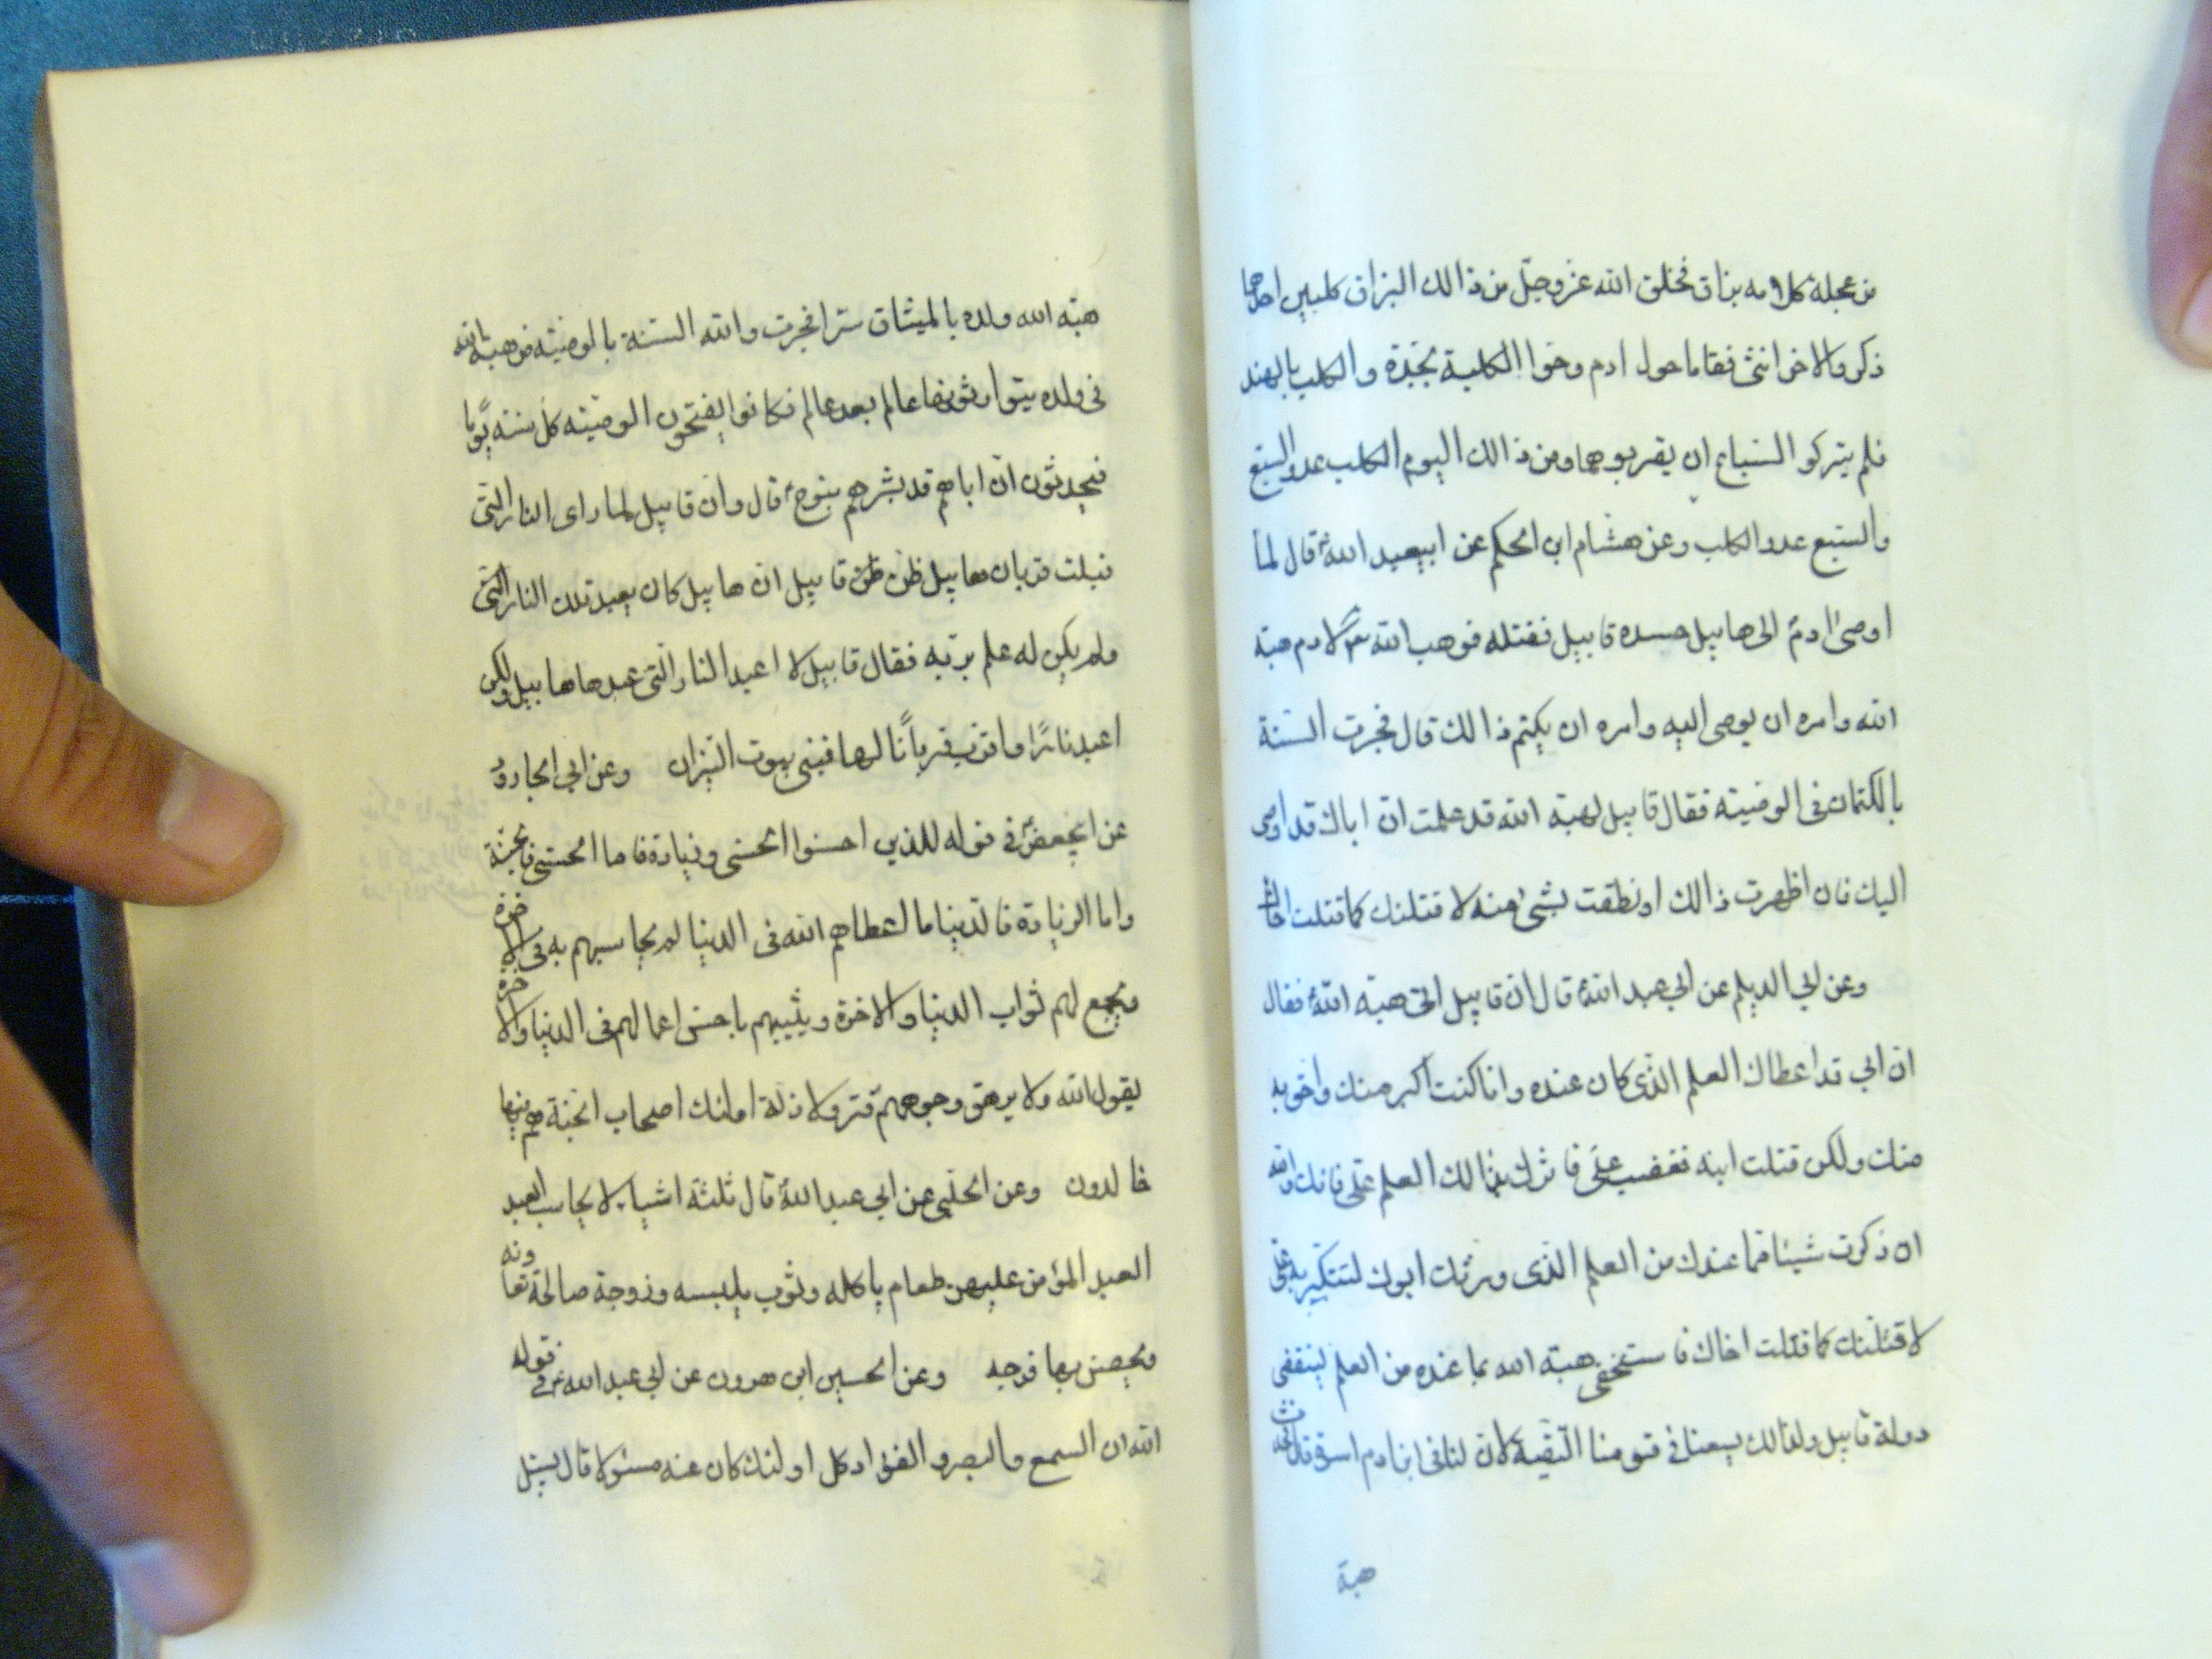 من عجلة كلامه بزاق فخلق الله عز وجل من ذالك البزاق كلبين احدهما
ذكر والاخر انثى فقاما حول ادم وحوا الكلبة بجدة والكلب بالهند
فلم يتركو السباع ان يقربوهما ومن ذالك اليوم الكلب عدو السبع
والسبع عدو الكلب وعن هشام ابن الحكم عن ابيعبد الله ع قال لما
اوصى ادم ع الى هابيل حسده قابيل فقتله فوهب الله لادم هبة
الله وامره ان يوصى اليه وامره ان يكتم ذالك قال فجرت السنة
بالكتمان فى الوصية فقال قابيل لهبة الله قد علمت ان اباك قد اوصى
اليك فان اظهرت ذالك او نطقت بشئ منه لاقتلنك كما قتلت اخاك
وعن ابي الديلم عن ابي عبد الله ع قال ان قابيل اتى هبة الله ع فقال
ان ابي قد اعطاك العلم الذى كان عنده وانا كنت اكبر منك واحق به
منك ولكن قتلت ابنه فغضب على فاثرك بذالك العلم على فانك والله
ان ذكرت شيئا مما عندك من العلم الذى ورثك ابوك لتتكبر به على
لاقتلنك كما قتلت اخاك فاستخفى هبة الله بما عنده من العلم لينقضى
دولة قابيل ولذالك يسعنا في قومنا التقية لان لنا فى ابن ادم اسوة قال فحدث
هبة
هبة الله ولده بالميثاق سرا فجرت والله السنة بالوصية من هبة الله
فى ولده يتوارثونها عالم بعد عالم فكانوا يفتحون الوصية كل سنة يوما
فيحدثون ان اباهم قد بشرهم بنوح ع قال وان قابيل لما راى النار التى
قبلت قربان هابيل ظن ظن قابيل ان هابيل كان يعبد تلك النار التى
ولم يكن له علم بربه فقال قابيل لا اعبد النار التى عبدها هابيل ولكن
اعبد نارًا واقرب قربانًا لها فبنى بيوت النيران وعن ابي الجارود
عن ابيجعفر ع في قوله للذين احسنوا الحسنى وزيادة فاما الحسنى فالجنة
واما الزيادة فالدنيا ما اعطاهم الله فى الدنيا لم يحاسبهم به فى الاخرة
ويجمع لهم ثواب الدنيا والاخرة ويثيبهم باحسن اعمالهم فى الدنيا والاخرة
يقول الله ولا يرهق وجوههم قتر ولا ذلة اولئك اصحاب الجنة هم فيها
خالدون وعن الحلبى عن ابي عبد الله ع قال ثلثة اشياء لا يحاسب العبد
العبد المؤمن عليهن طعام ياكله وثوب يلبسه وزوجة صالحة تعاونه
ويحصن بها فرجه وعن الحسين ابن هرون عن ابي عبد الله ع فى قوله
الله ان السمع والبصر والفؤاد كل اولئك كان عنه مسئولا قال يسئل